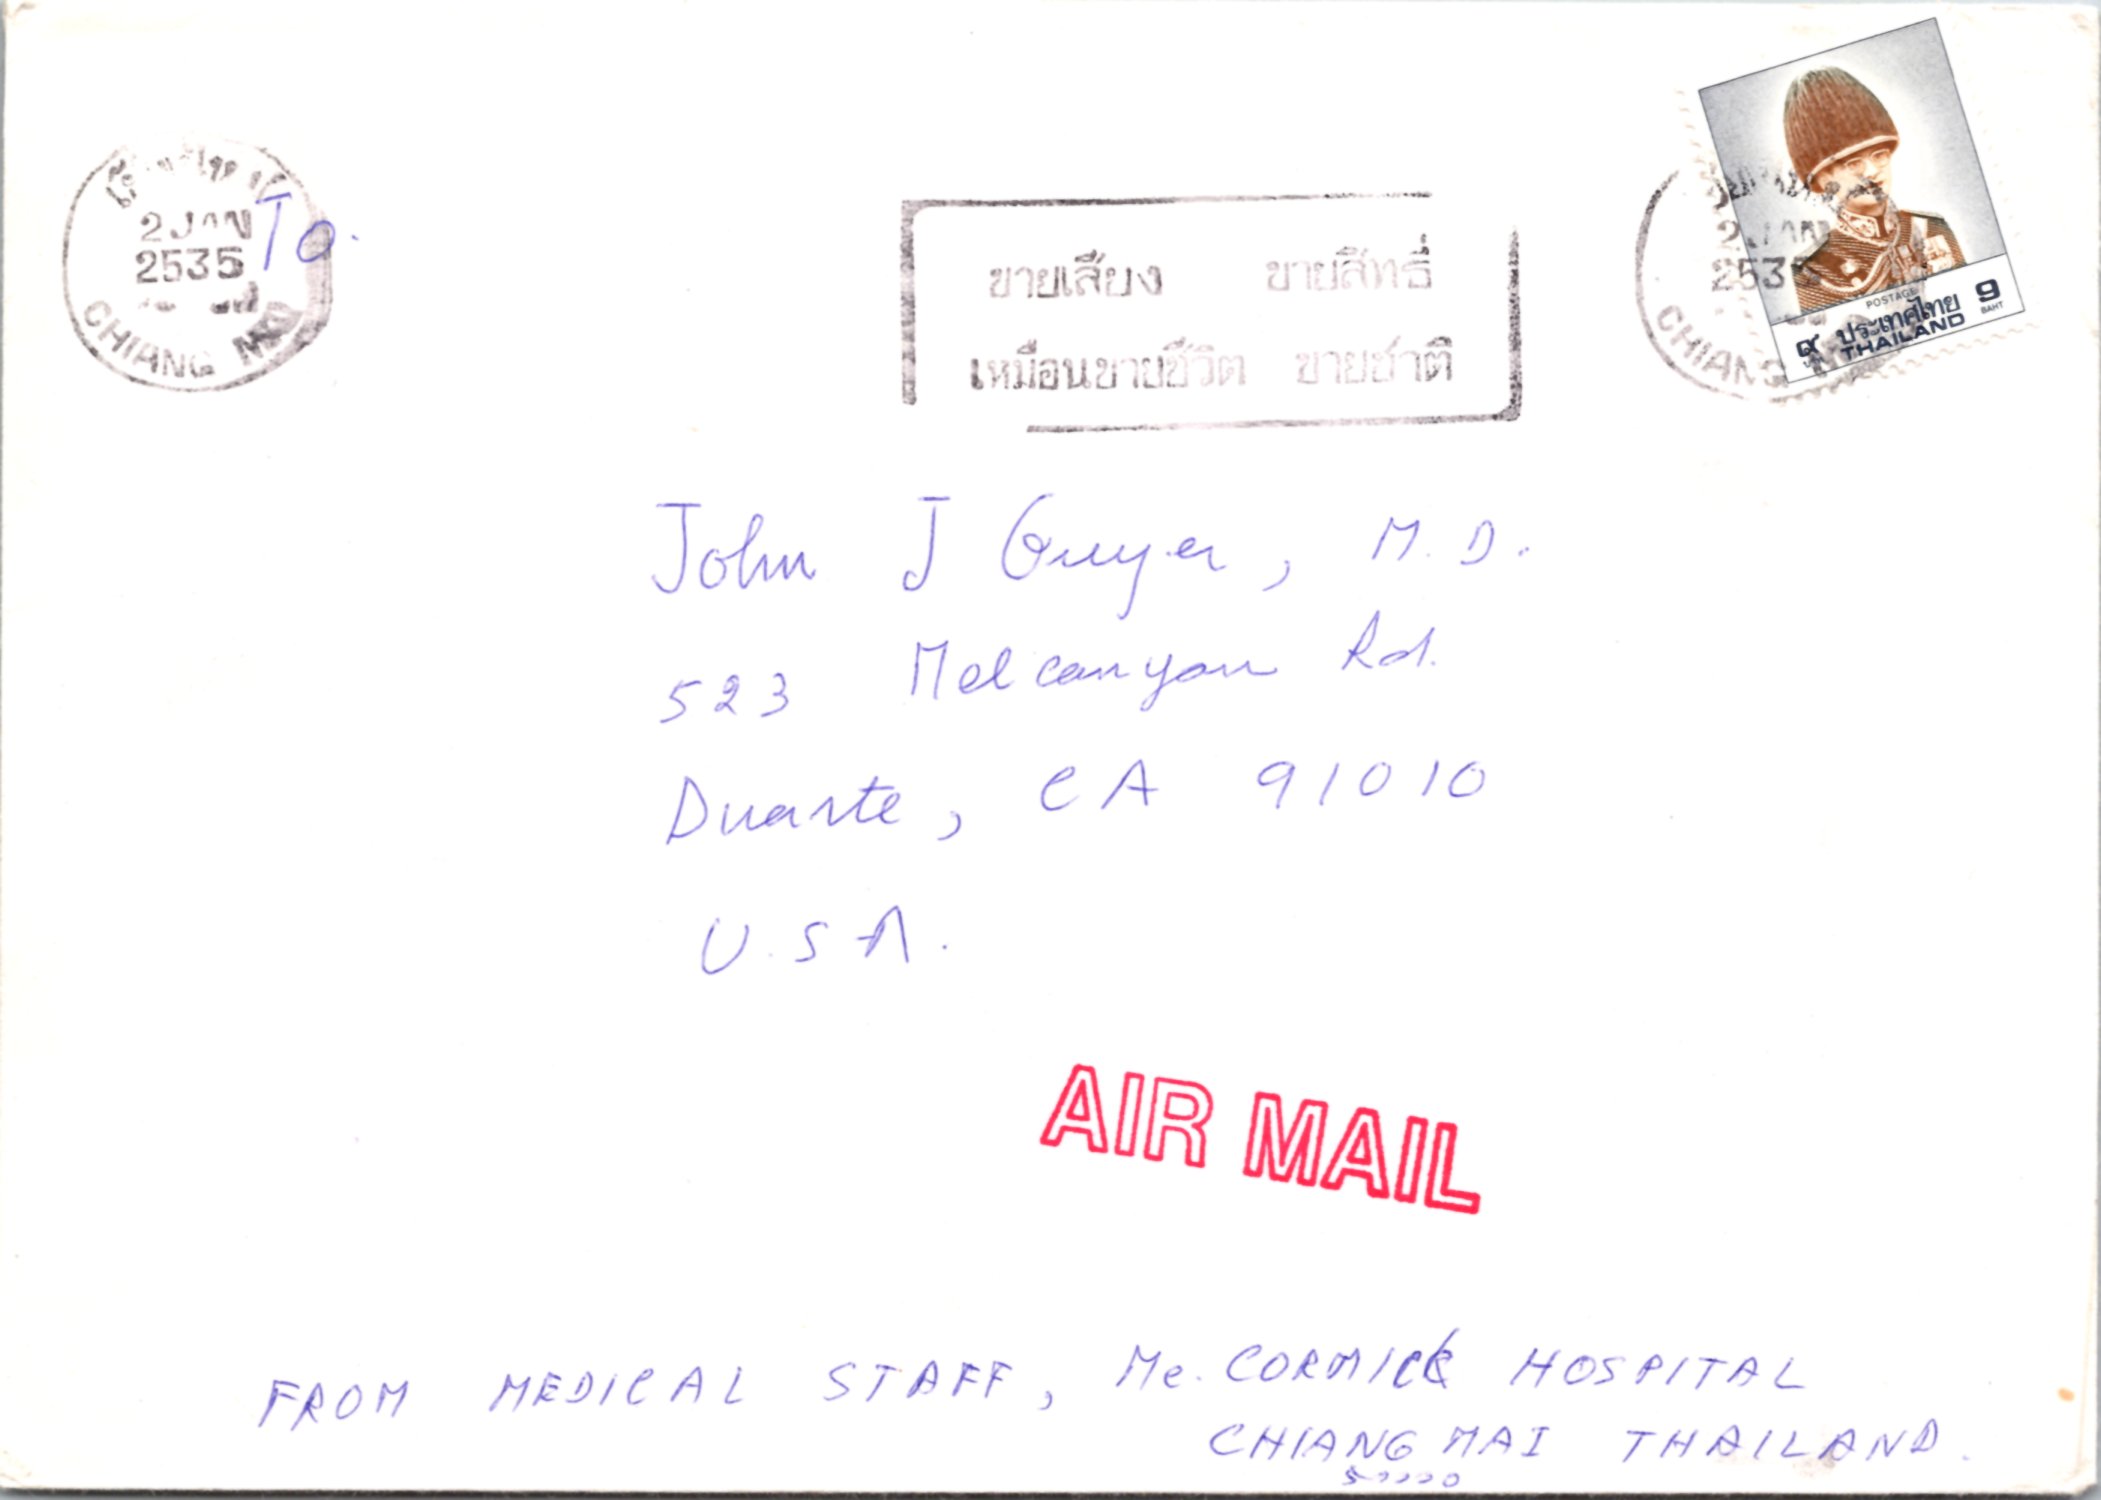 2 JAN
2535
CHIANG MAI
To.
ขายเสียง ขายสิทธิ์
เหมือนขายชีวิต ขายชาติ
2 JAN
2535
CHIANG
POSTAGE
๙ ประเทศไทย 9
บาท THAILAND BAHT
John J Guyer, M.D.
523 Melcanyon Rd.
Duarte, CA 91010
U.S.A.
AIR MAIL
FROM MEDICAL STAFF, Mc.CORMICK HOSPITAL
CHIANG MAI THAILAND.